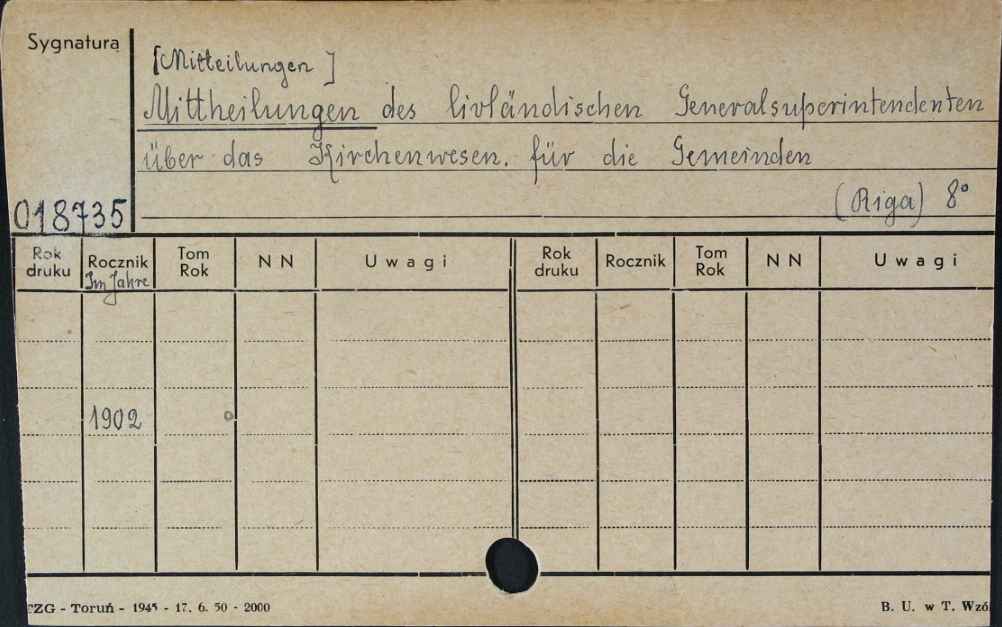 Sygnatura
[Mitteilungen]
Mittheilungen des livländischen Generalsuperintendenten
über das Kirchenwesen. für die Gemeinden
018735
(Riga) 8°
Rok druku Rocznik Tom Rok NN Uwagi Rok druku Rocznik Tom Rok NN Uwagi
Im Jahre
1902
TZG - Toruń - 1945 - 17. 6. 50 - 2000
B. U. w T. Wzó